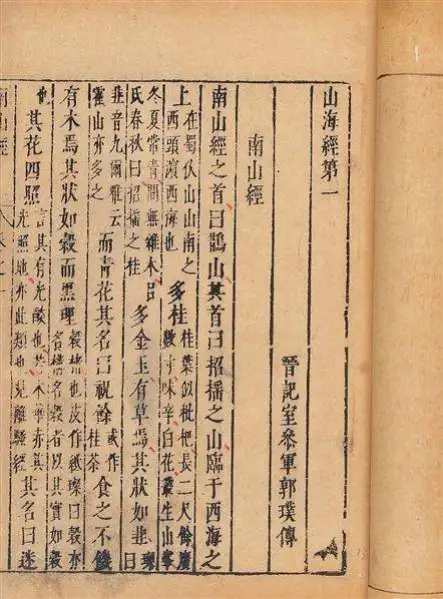 山海經第一
晉記室叅軍郭璞傳
南山經
南山經之首曰鵲山其首曰招摇之山臨于西海之
上在蜀伏山山南之西頭濱西海也多桂桂葉似枇杷長二尺餘廣數寸味辛白花叢生山峯
冬夏常青間無雜木吕氏春秋曰招摇之桂多金玉有草焉其狀如韭璨曰
韭音九爾雅云霍山亦多之而青花其名曰祝餘或作桂荼食之不饑
有木焉其狀如榖而黑理榖楮也皮作紙璨曰榖亦名構名榖者以其實如榖
也其花四照言其有光燄也若木華亦其光照地亦此類也見離騷經其名曰迷
南山經